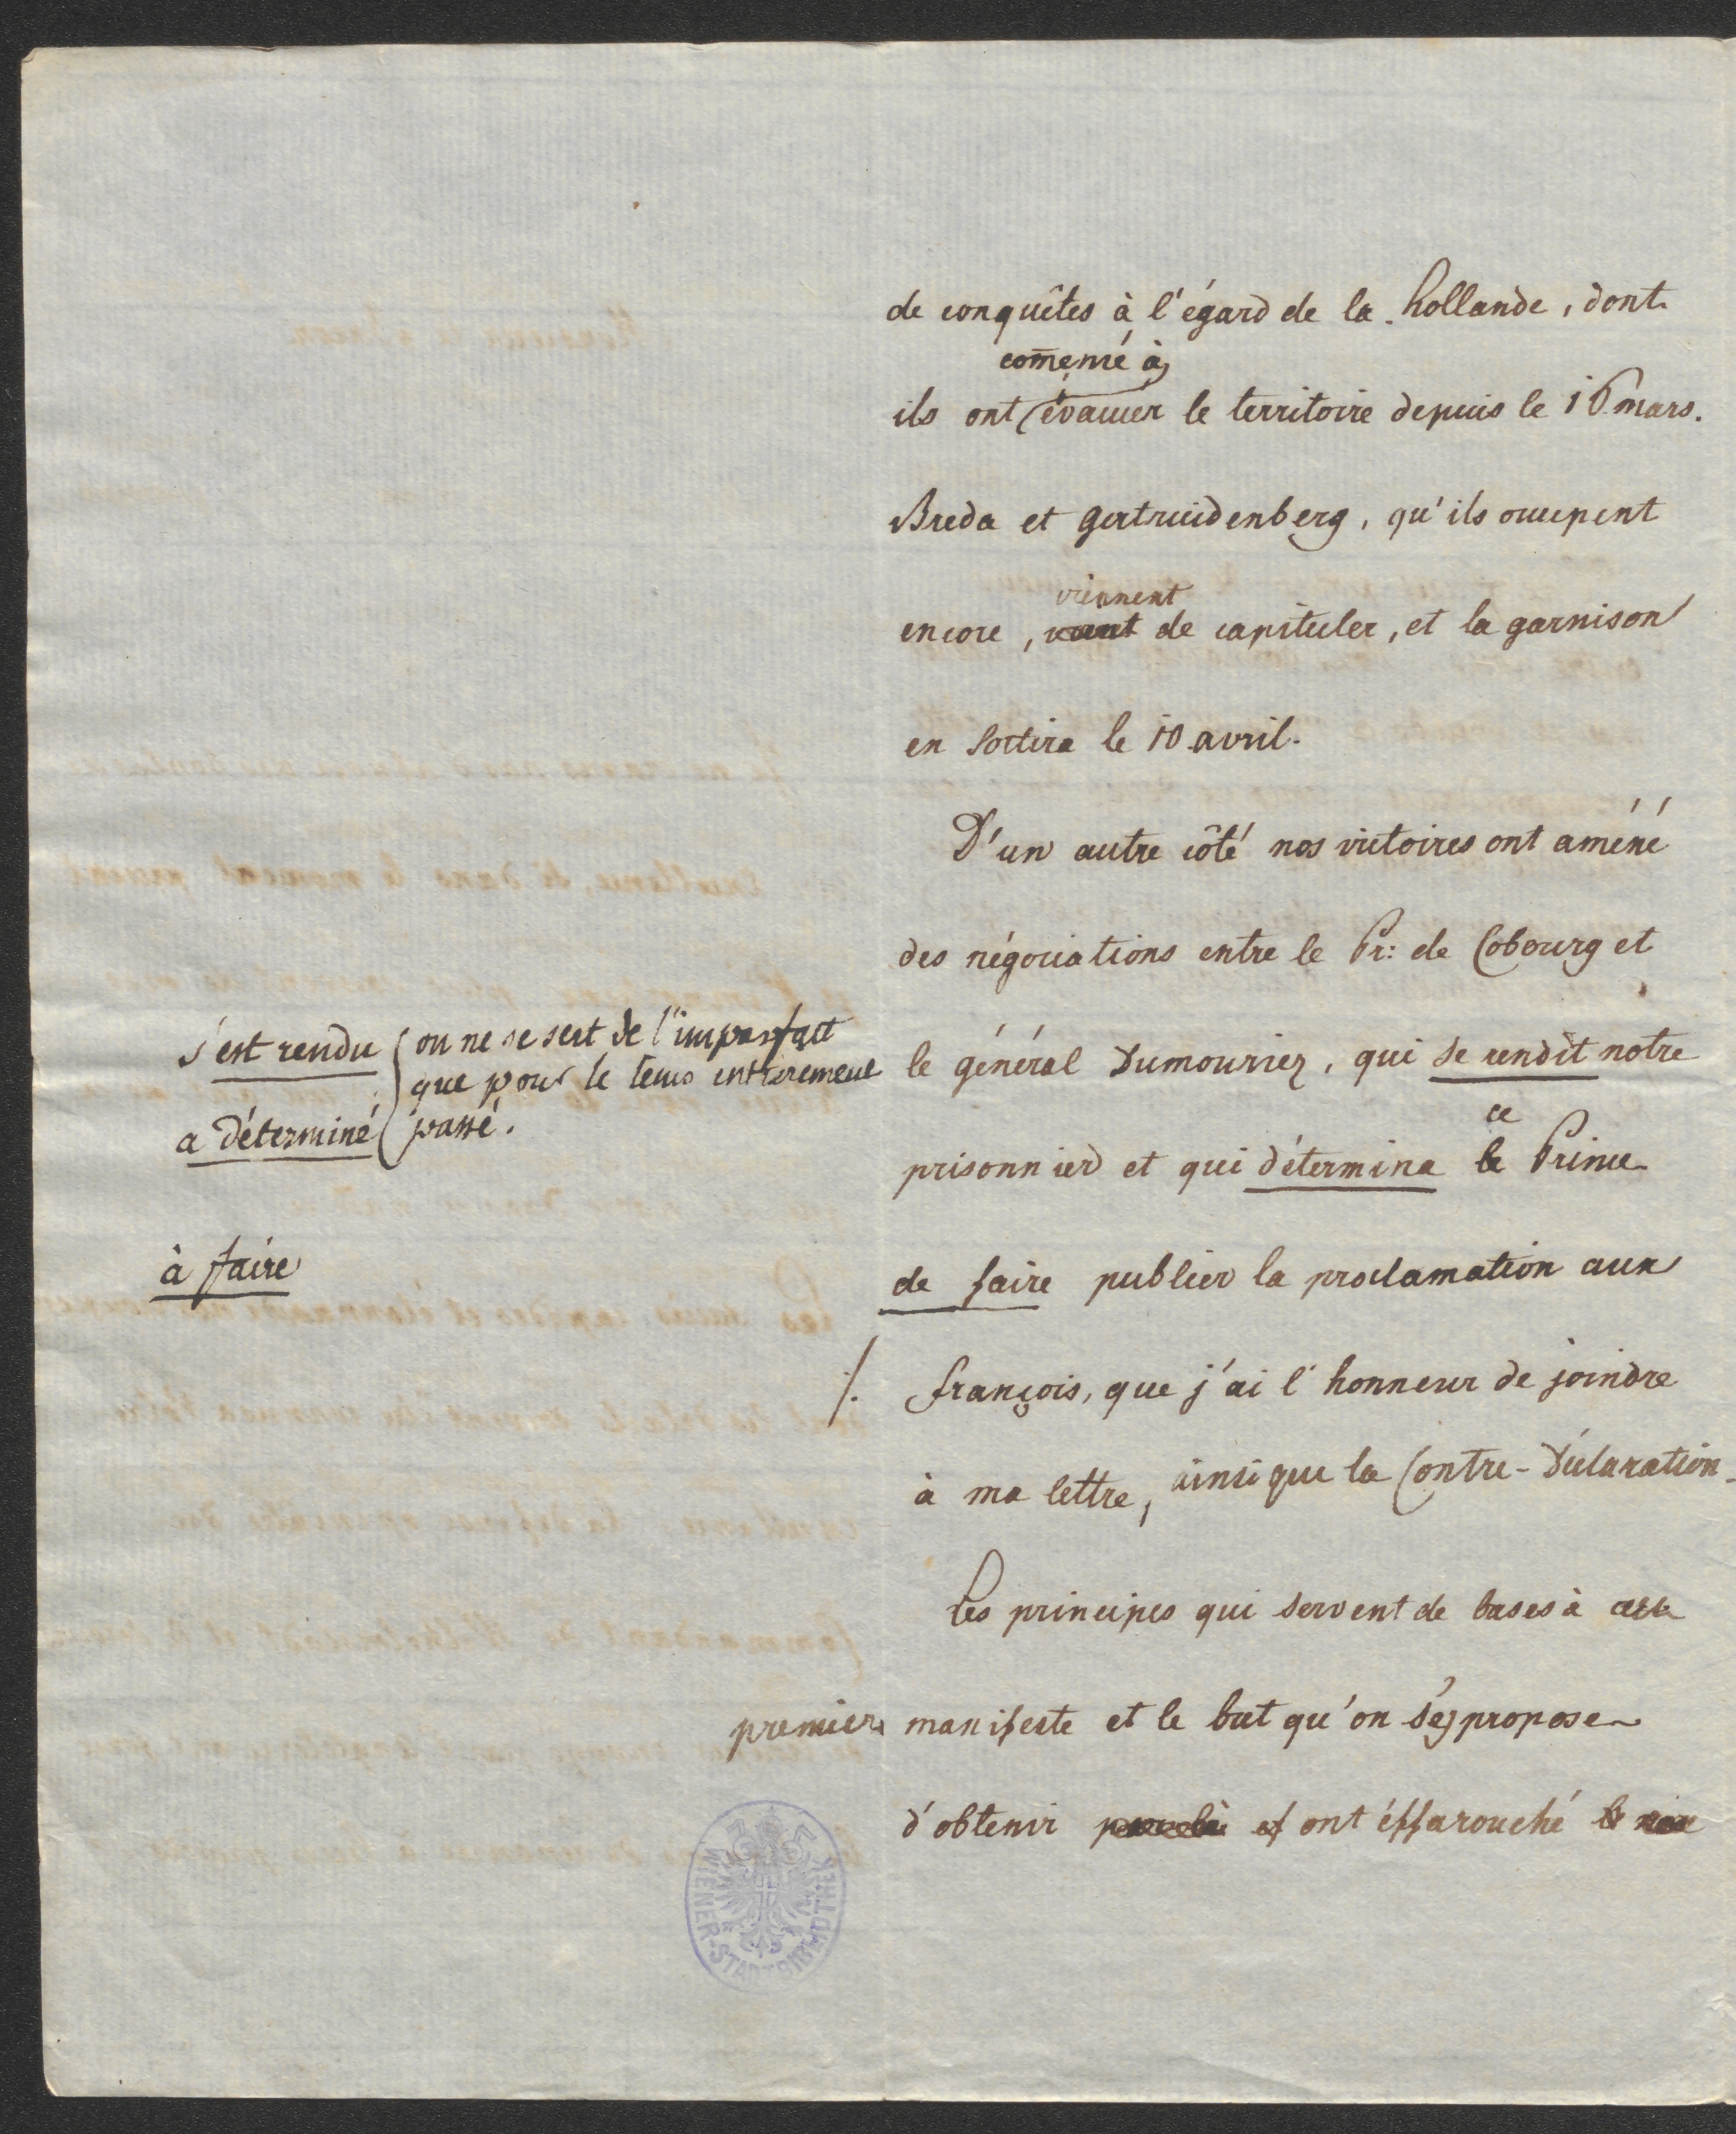 de conquêtes à l'égard de la hollande, dont
com̄encé à
ils ont évacuer le territoire depuis le 16 mars.
Breda et Gertruidenberg, qu'ils occupent
viennent
encore, de capituler, et la garnison
en sortira le 10 avril.
D'un autre côté nos victoires ont améné
des négociations entre le Pr: de Cobourg et
s'est rendu
a déterminé
on ne se sert de l'imparfait
que pour le tems entierement
passé.
le général Dumouriez, qui se rendit notre
ce
prisonnier et qui détermina le Prince
à faire
de faire publier la proclamation aux
./. françois, que j'ai l'honneur de joindre
à ma lettre, ainsi que la Contre-Déclaration.
Les principes qui servent de bases à
premier manifeste et le but qu'on s'y propose
d'obtenir ont éffarouché
WIENER STADTBIBLIOTHEK